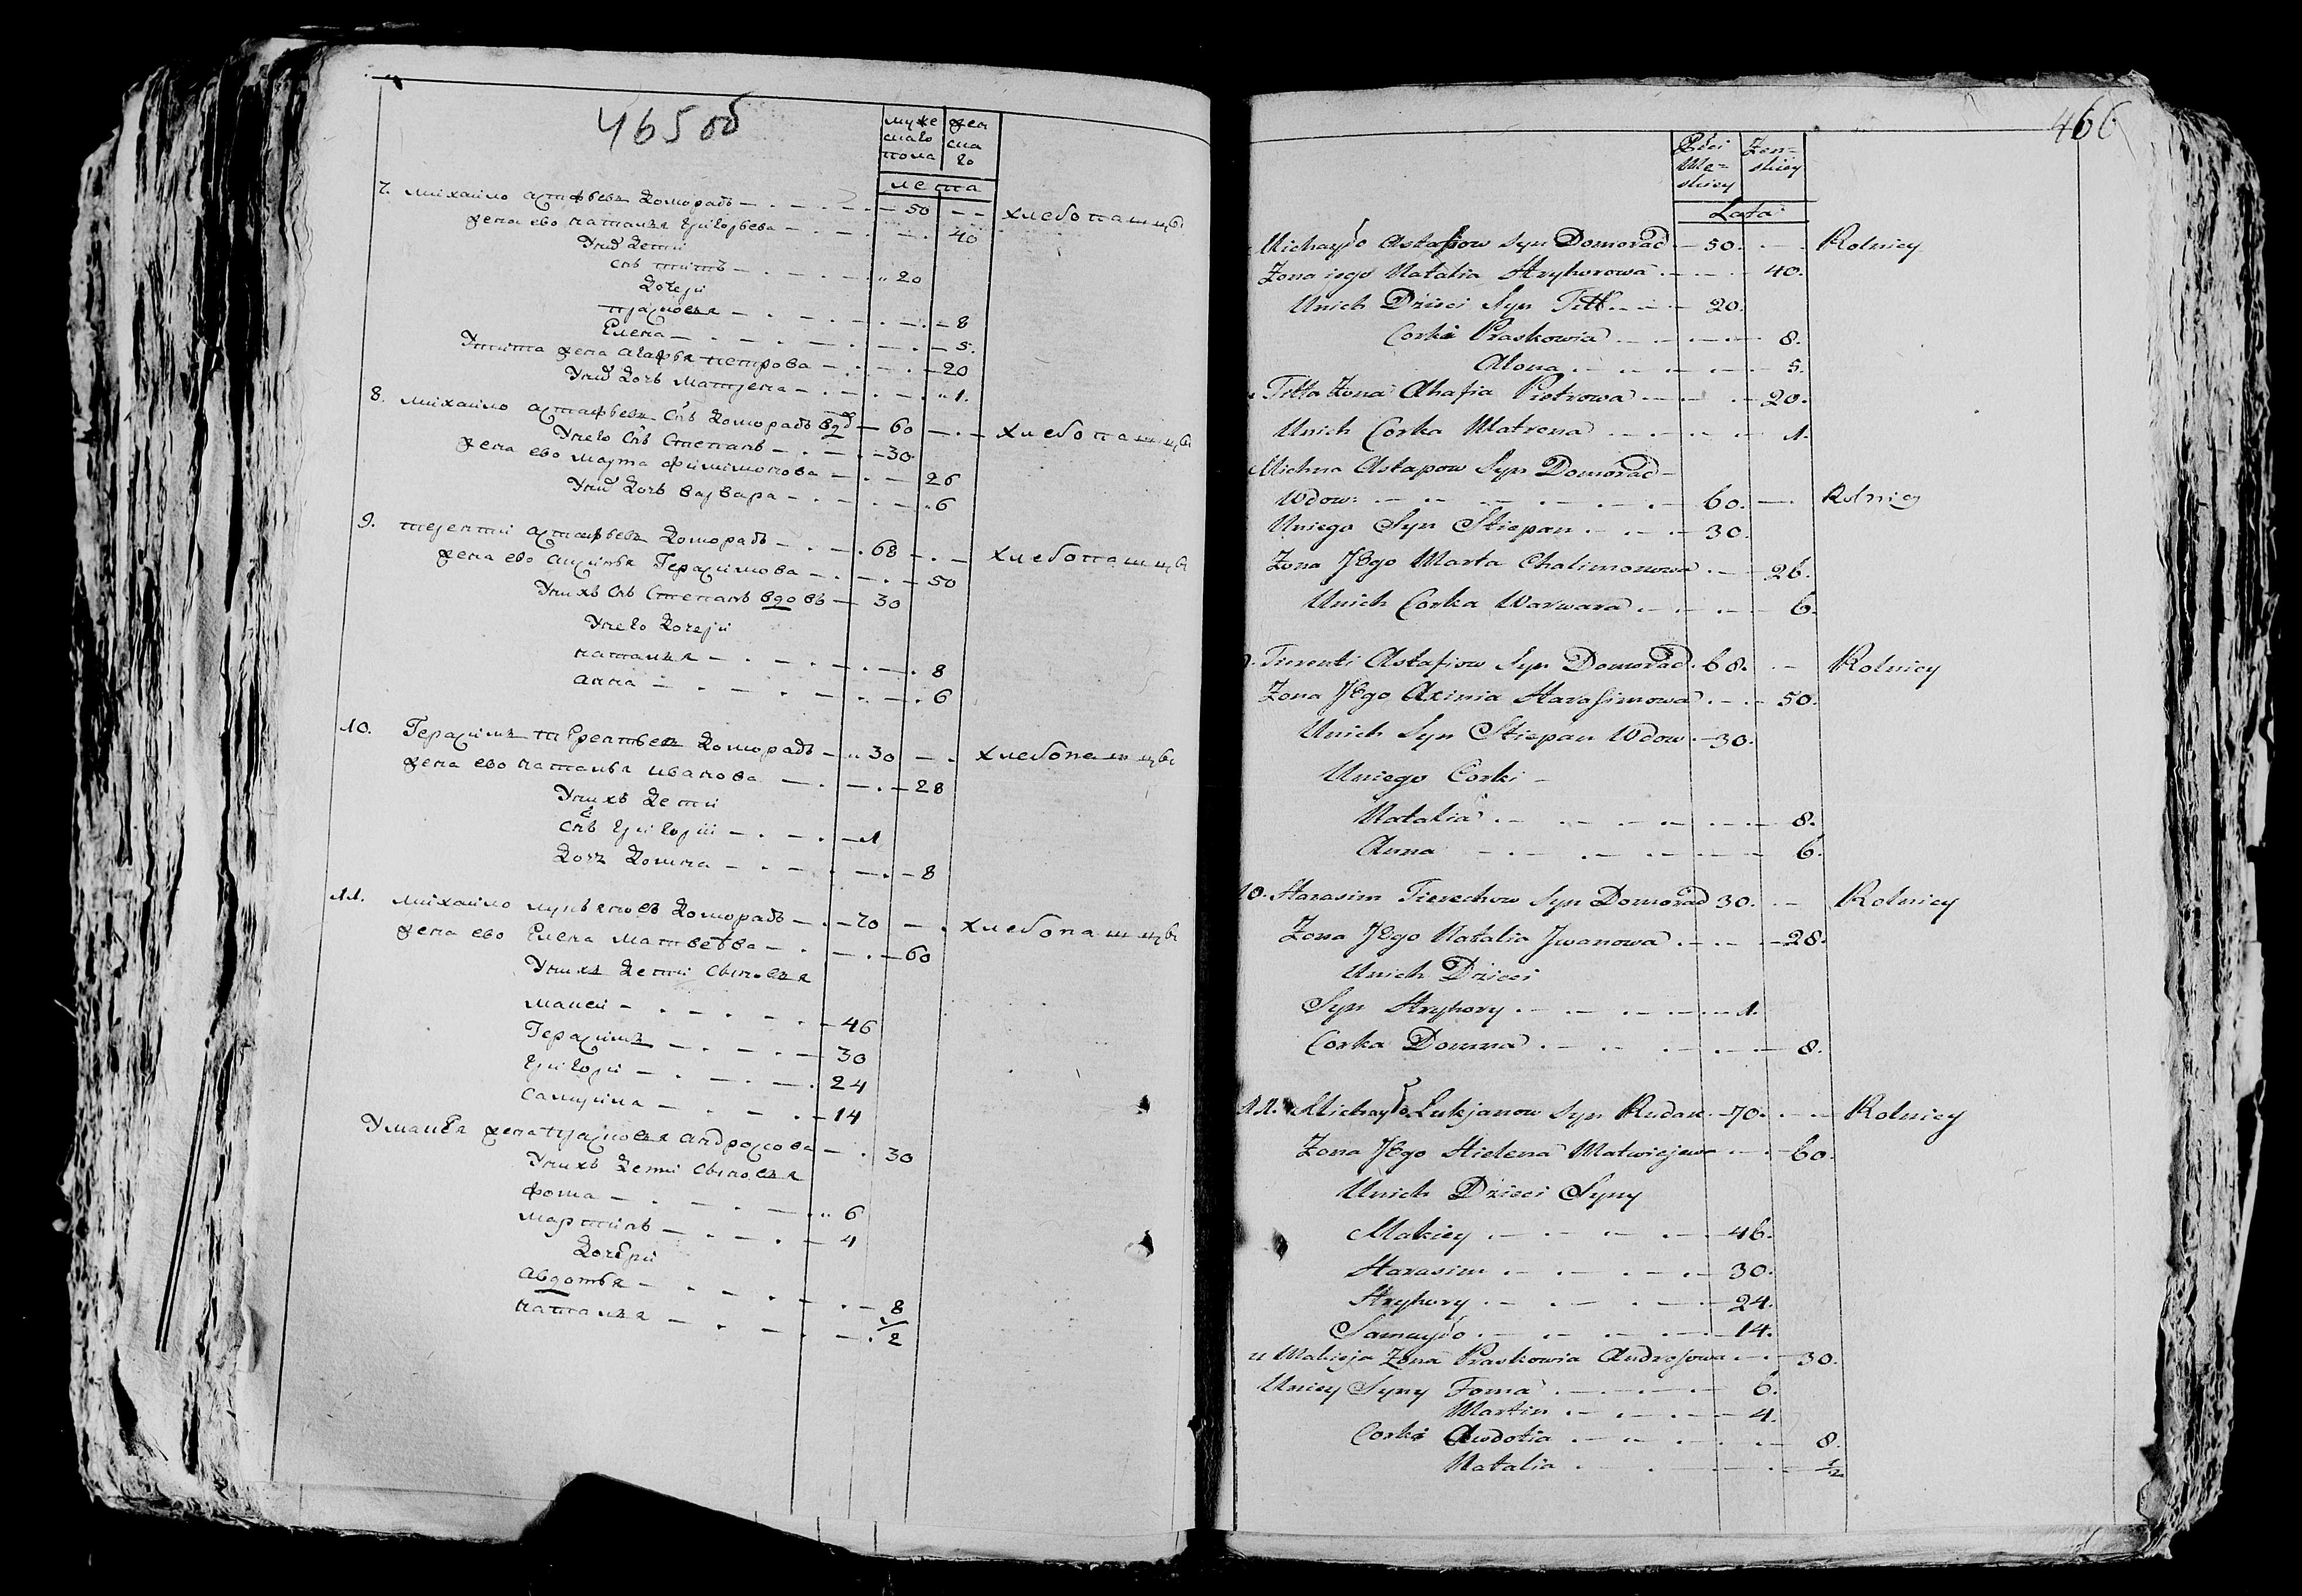 465 об
муже
скаго
пола
жен
ска
го
лета
7. михаило астафьевъ доморадъ — 50 — хлебопашцы
жена ево наталья григорьева — 40
у них дети
снъ титъ — 20
дочери
прасковья — 8
Елена — 5.
У тита жена агафья петрова — 20
У них дочь матрена — 1.
8. михаило астафьевъ снъ доморадъ вдо — 60 — хлебопашцы
У него снъ степанъ — 30
жена ево марта филимонова — 26
У них дочь варвара — 6
9. терентии астафьевъ доморадъ — 68 — хлебопашцы
жена ево аксинья Герасимова — 50
У нихъ снъ степанъ вдовъ — 30
У него дочери
наталья — 8
анна — 6
10. Герасимъ терентьевъ доморадъ — 30 — хлебопашцы
жена ево наталья иванова — 28
У нихъ дети
снъ григории — 1
дочь домна — 8
11. михаило лукьяновъ доморадъ — 70 — хлебопашцы
жена ево Елена матвеева — 60
У нихъ дети сыновья
макеи — 46
Герасимъ — 30
григори — 24
самуила — 14
У макея жена прасковья андросова — 30
У нихъ дети сыновья
фома — 6
мартинъ — 4
дочери
авдотья — 8
наталья — 1/2
466
Płci
Mę-
skiey
Żen-
skiey
Lata
Michayło Astafiow Syn Domorad — 50. — Rolnicy
Zona iego Natalia Hryhorowa — 40.
Unich Dzieci Syn Titt — 20.
Corki Praskowia — 8.
Alona — 5.
Titta Zona Ahafia Piotrowa — 20.
Unich Corka Matrena — 1.
Michna Astapow Syn Domorad —
Wdow: — 60. — Rolnicy
Uniego Syn Stiepan — 30.
Zona Jego Marta Chalimonowa — 26.
Unich Corka Warwara — 6.
Tierenti Astafiow Syn Domorad. 68. — Rolnicy
Zona Jego Axinia Harasimowa — 50.
Unich Syn Stiepan Wdow — 30.
Uniego Corki —
Natalia — 8.
Anna — 6.
10. Harasim Tierechow Syn Domorad 30. — Rolnicy
Zona Jego Natalia Jwanowa — 28.
Unich Dzieci
Syn Hryhory — 1.
Corka Domna — 8.
11. Michayło Lukjanow Syn Rudak — 70. — Rolnicy
Zona Jego Hielena Matwiejewa — 60.
Unich Dzieci Syny
Makiey — 46.
Harasim — 30.
Hryhory — 24.
Samuyło — 14.
u Makieja Zona Praskowia Androsowa — 30.
Unicy Syny Foma — 6.
Martin — 4.
Corki Awdotia — 8.
Natalia — 1/2